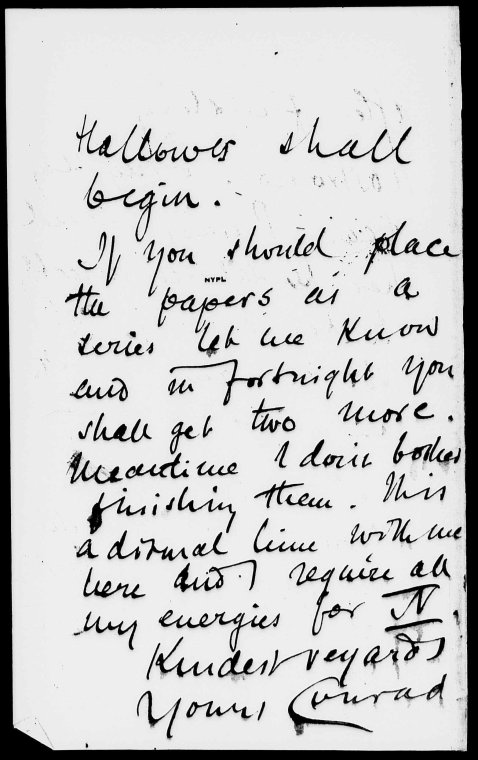 Hallowes shall
begin.
If you should place
NYPL
the papers as a
series let me know
and in fortnight you
shall get two more.
Meantime I don't bother
finishing them. This
a dismal time with me
here and I require all
my energies for N.
Kindest regards
Yours Conrad